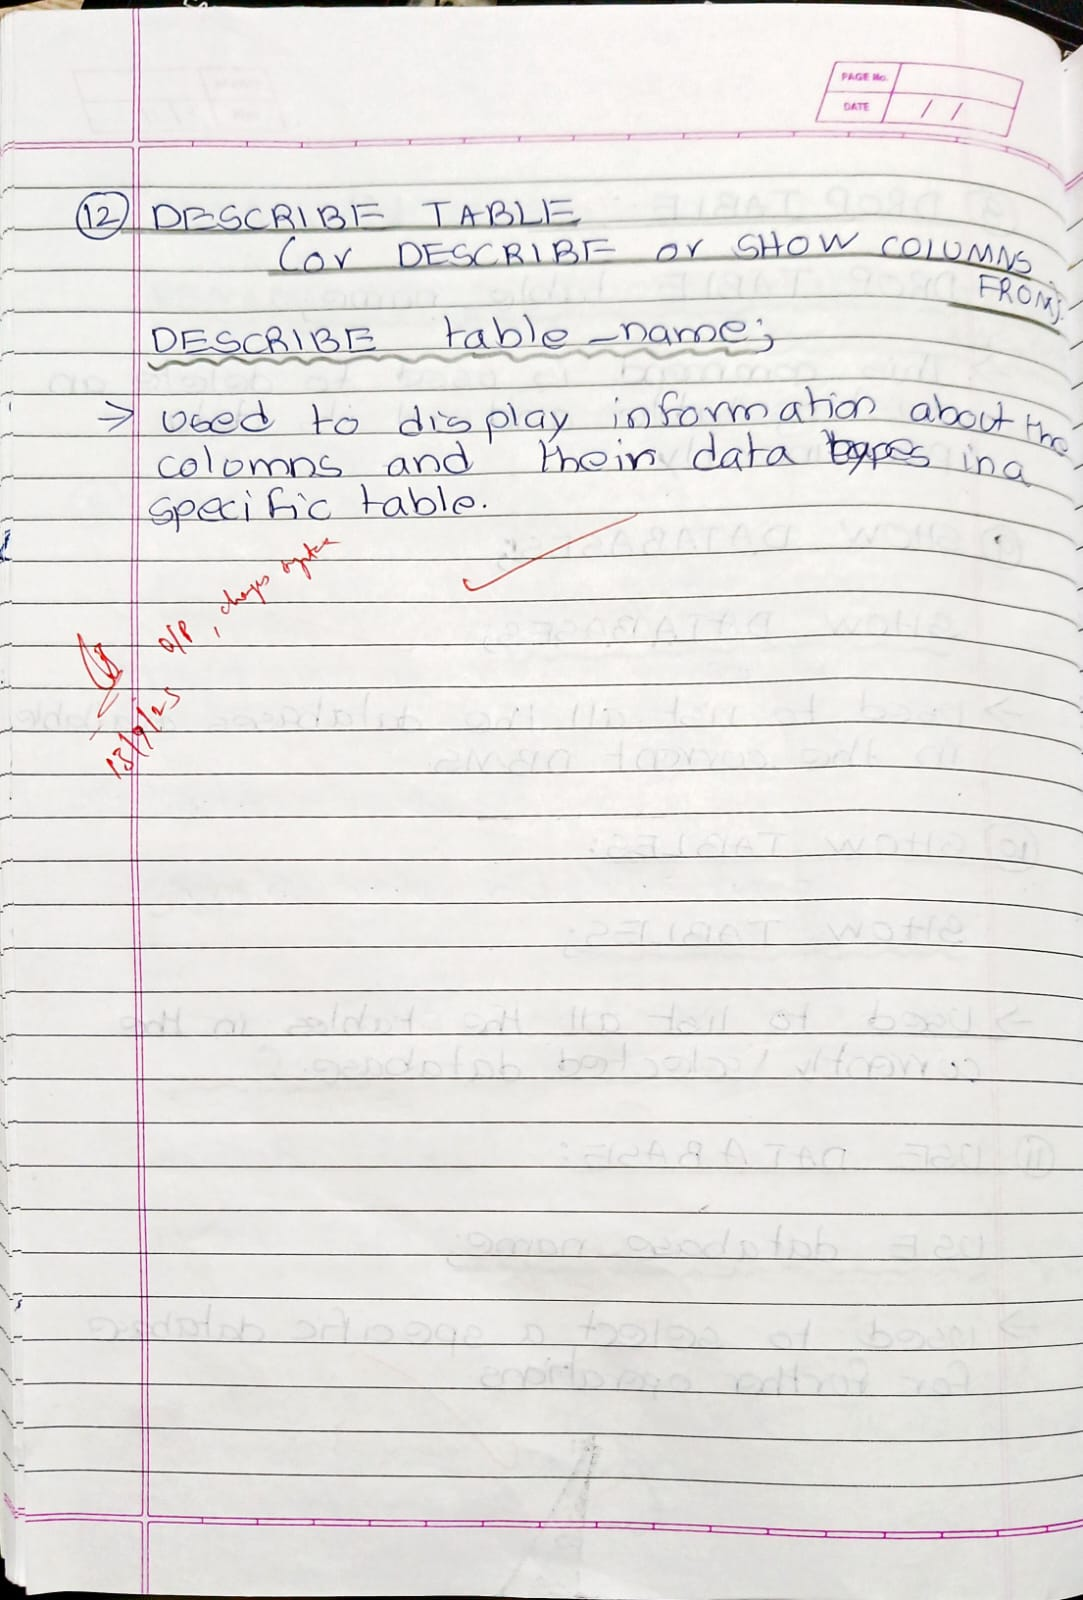 PAGE No.
DATE / /
12 DESCRIBE TABLE
(or DESCRIBE or SHOW COLUMNS
FROM;
DESCRIBE table_name;
→ Used to display information about the
colomns and their data types in a
specific table.
O/P, changes syntax
13/9/25